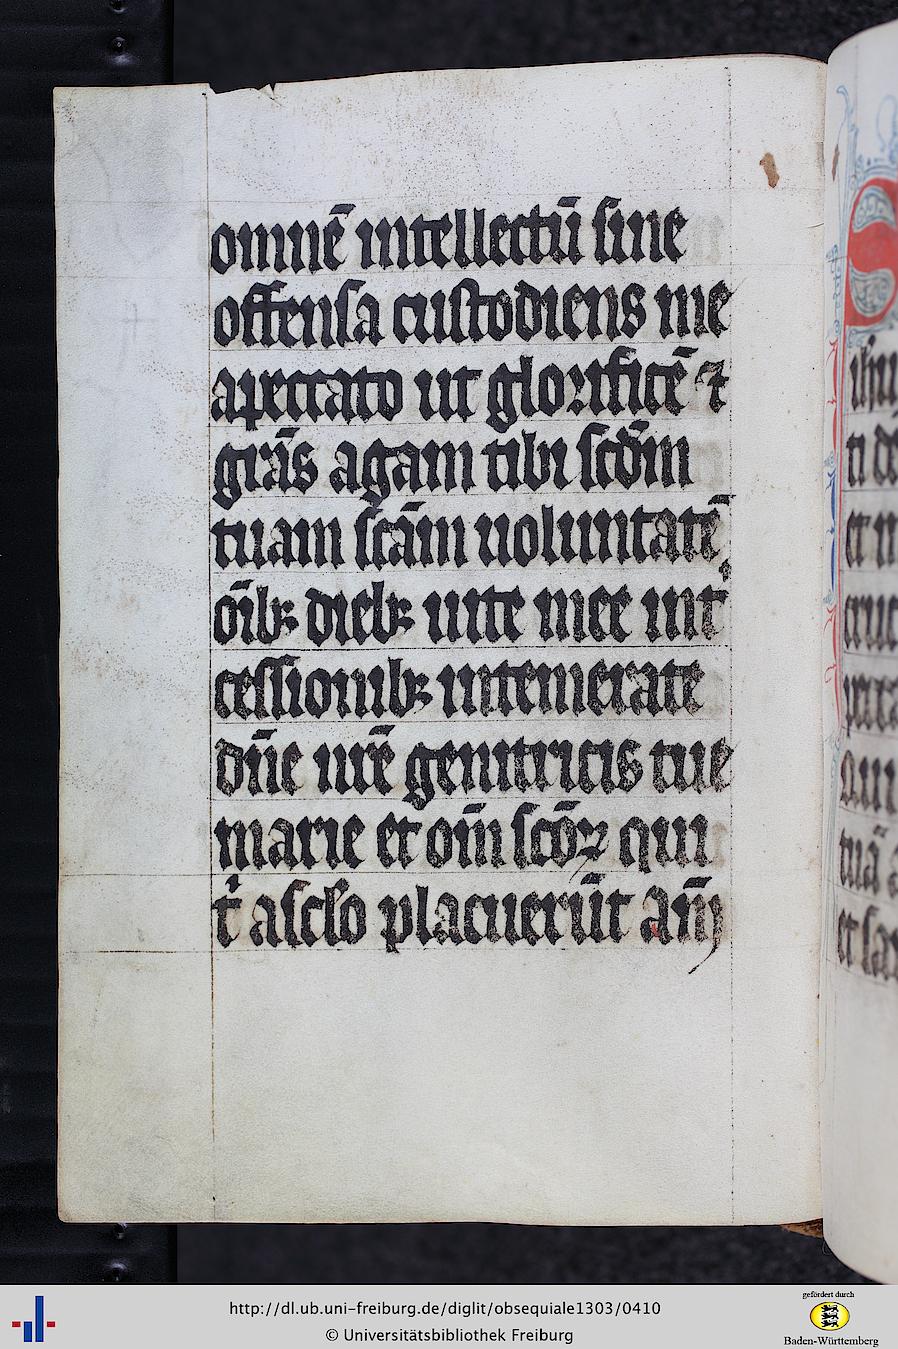 omnē intellectū sine
offensa custodiens me
apeccato ut glorificē ⁊
grās agam tibi scdm̄
tuam scām uoluntatē
oīb⁊ dieb⁊ uite mee int͛
cessionib⁊ intemerate
dn̄e nr̄e genitricis tue
marie et oīm scōꝝ qui
t̄ asclo placuerūt am̄
ihu
ti
et
cruc
pecca
tuā
et
http://dl.ub.uni-freiburg.de/diglit/obsequiale1303/0410
© Universitätsbibliothek Freiburg
gefördert durch
Baden-Württemberg